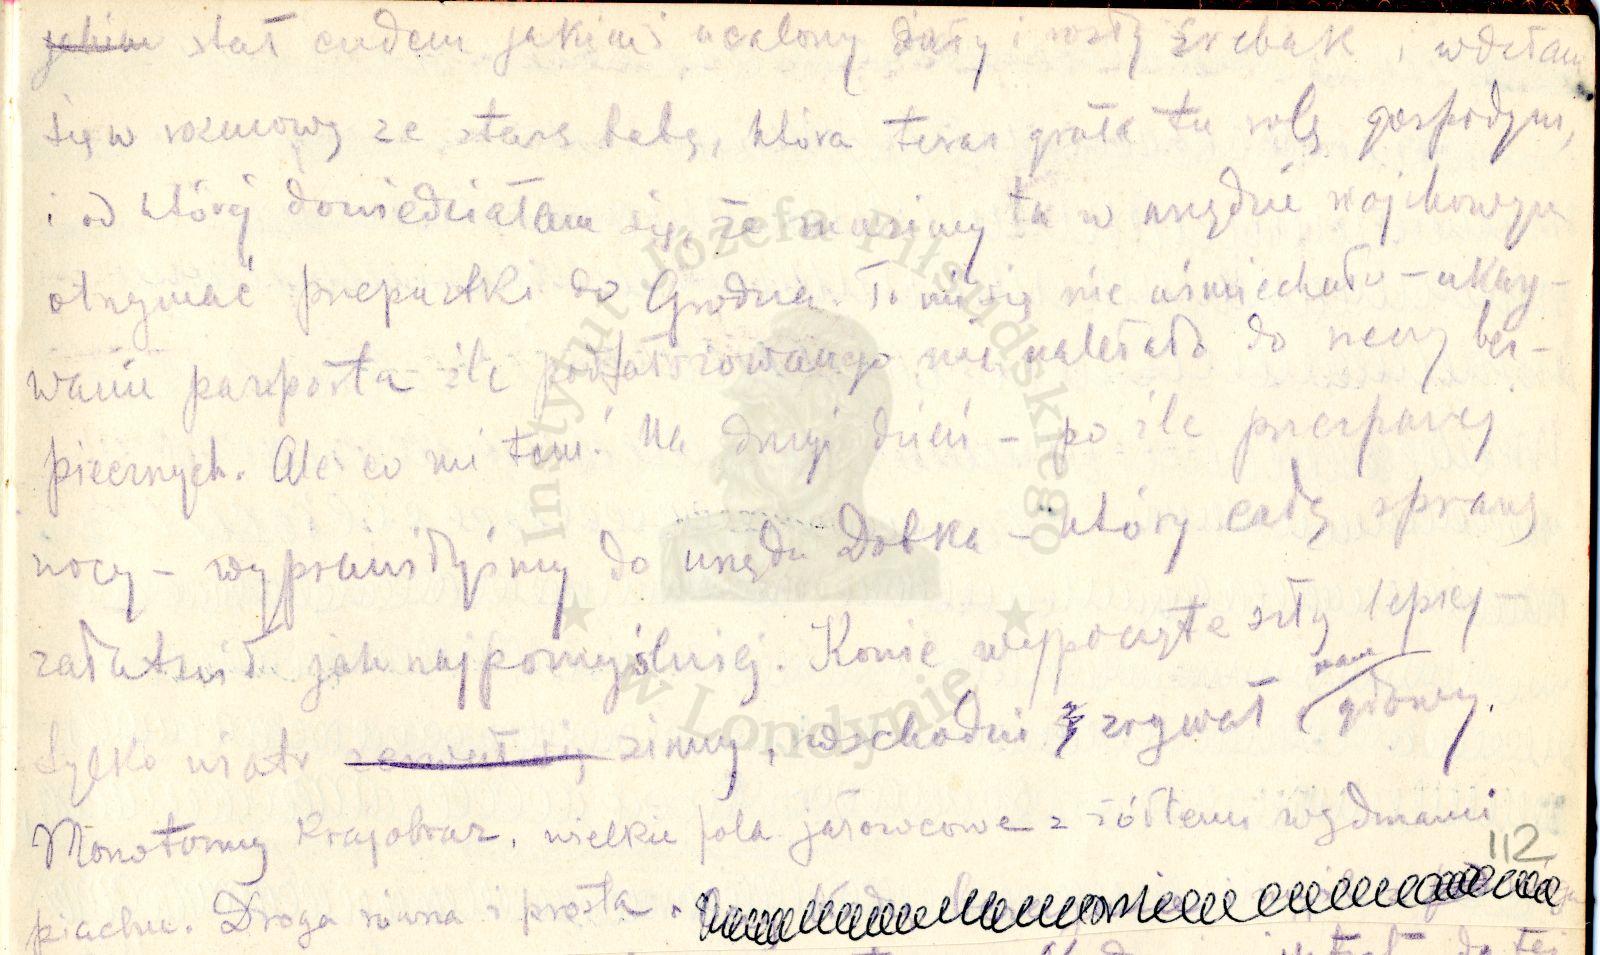 jakim stał cudem jakimś ocalony duży i rosły źrebak, wdałam
się w rozmowę ze starą babą, która teraz grała tu rolę gospodyni,
i od której dowiedziałam się, że musimy tu w urzędzie wojskowym
otrzymać przepustki do Grodna. To mi się nie uśmiechało – ukazy-
wanie paszportu źle podfałszowanego nie należało do rzeczy bez-
piecznych. Ale co mi tam! Na drugi dzień – po źle przespanej
nocy – wyprawiłyśmy do urzędu Dobka – który całą sprawę
załatwił jak najpomyślniej. Konie wypoczęte szły lepiej –
tylko wiatr zerwał się zimny, wschodni i zrywał nam z głowy.
Monotonny krajobraz, wielkie pola jałowcowe z żółtemi wydmami
112
piachu. Droga równa i prosta.
Instytut Józefa Piłsudskiego
w Londynie